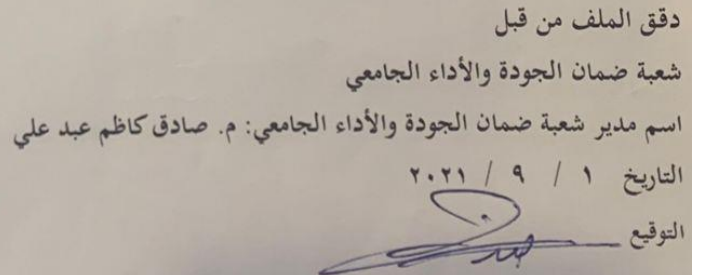 دقق الملف من قبل
شعبة ضمان الجودة والأداء الجامعي
اسم مدير شعبة ضمان الجودة والأداء الجامعي: م. صادق كاظم عبد علي
التاريخ ١ / ٩ / ٢٠٢١
التوقيع